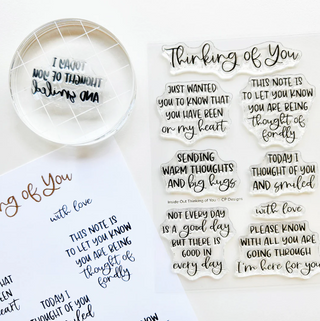 TODAY I
THOUGHT OF YOU
AND smiled
Thinking of You
JUST WANTED
YOU TO KNOW THAT
YOU HAVE BEEN
on my heart
THIS NOTE IS
TO LET YOU KNOW
YOU ARE BEING
thought of
fondly
SENDING
WARM THOUGHTS
AND big hugs
TODAY I
THOUGHT OF YOU
AND smiled
Inside Out Thinking of You
CP Designs
NOT EVERY DAY
IS a good day
BUT THERE IS
GOOD IN
every day
with love
PLEASE KNOW
WITH ALL YOU ARE
GOING THROUGH
I'm here for you
ng of You
with love
THIS NOTE IS
TO LET YOU KNOW
YOU ARE BEING
thought of
fondly
HAT
EEN
heart
TODAY I
THOUGHT OF YOU